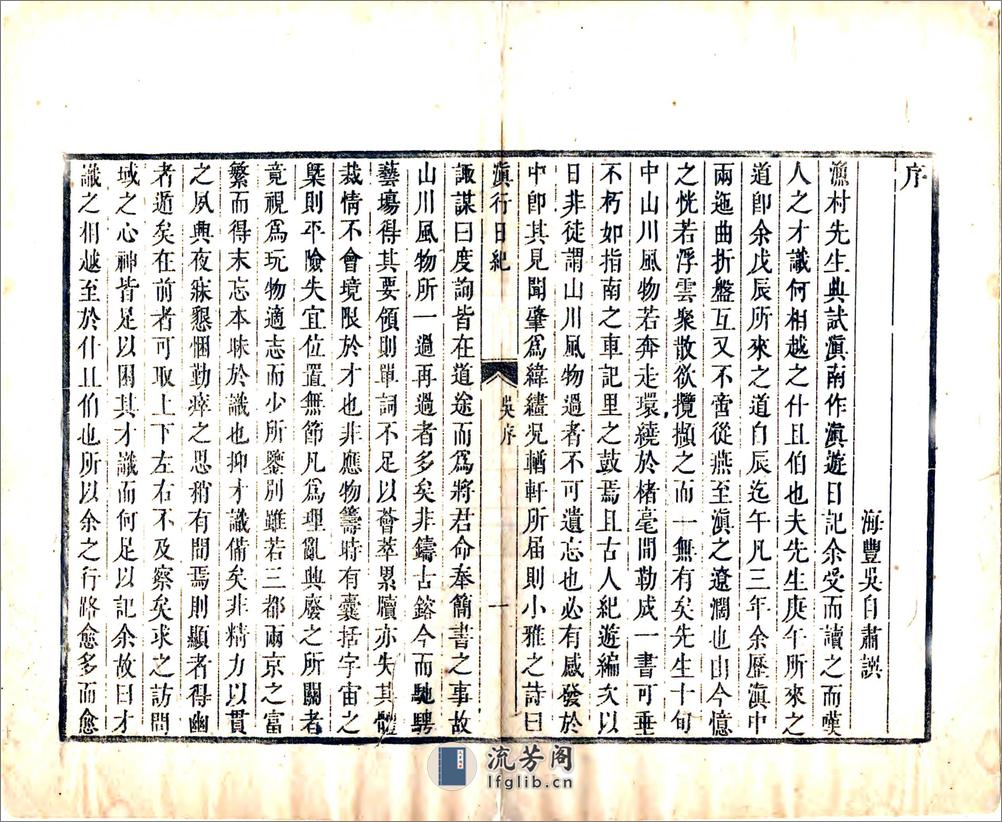 序
海豐吳自肅譔
漁村先生典試滇南作滇遊日記余受而讀之而嘆
人之才識何相越之什且伯也夫先生庚午所來之
道卽余戊辰所來之道自辰迄午凡三年余歷滇中
兩迤曲折盤互又不啻從燕至滇之遼濶也由今憶
之恍若浮雲聚散欲攬擷之而一無有矣先生十旬
中山川風物若奔走環繞於楮毫間勒成一書可垂
不朽如指南之車記里之鼓焉且古人紀遊編次以
日非徒謂山川風物過者不可遺忘也必有感發於
中卽其見聞肇爲緯繣况輶軒所届則小雅之詩曰
滇行日紀
吳序
一
諏謀曰度詢皆在道途而爲將君命奉簡書之事故
山川風物所一過再過者多矣非鑄古鎔今而馳騁
藝塲得其要領則單詞不足以薈萃累牘亦失其體
裁情不會境限於才也非應物籌時有囊括宇宙之
槩則平險失宜位置無節凡爲理亂興廢之所關者
竟視爲玩物適志而少所鑒別雖若三都兩京之富
繁而得末忘本昧於識也抑才識備矣非精力以貫
之夙興夜寐懇悃勤瘁之思稍有間焉則顯者得幽
者遁矣在前者可取上下左右不及察矣求之訪問
域之心神皆足以困其才識而何足以記余故曰才
識之相越至於什且伯也所以余之行路愈多而愈
流芳阁
lfglib.cn